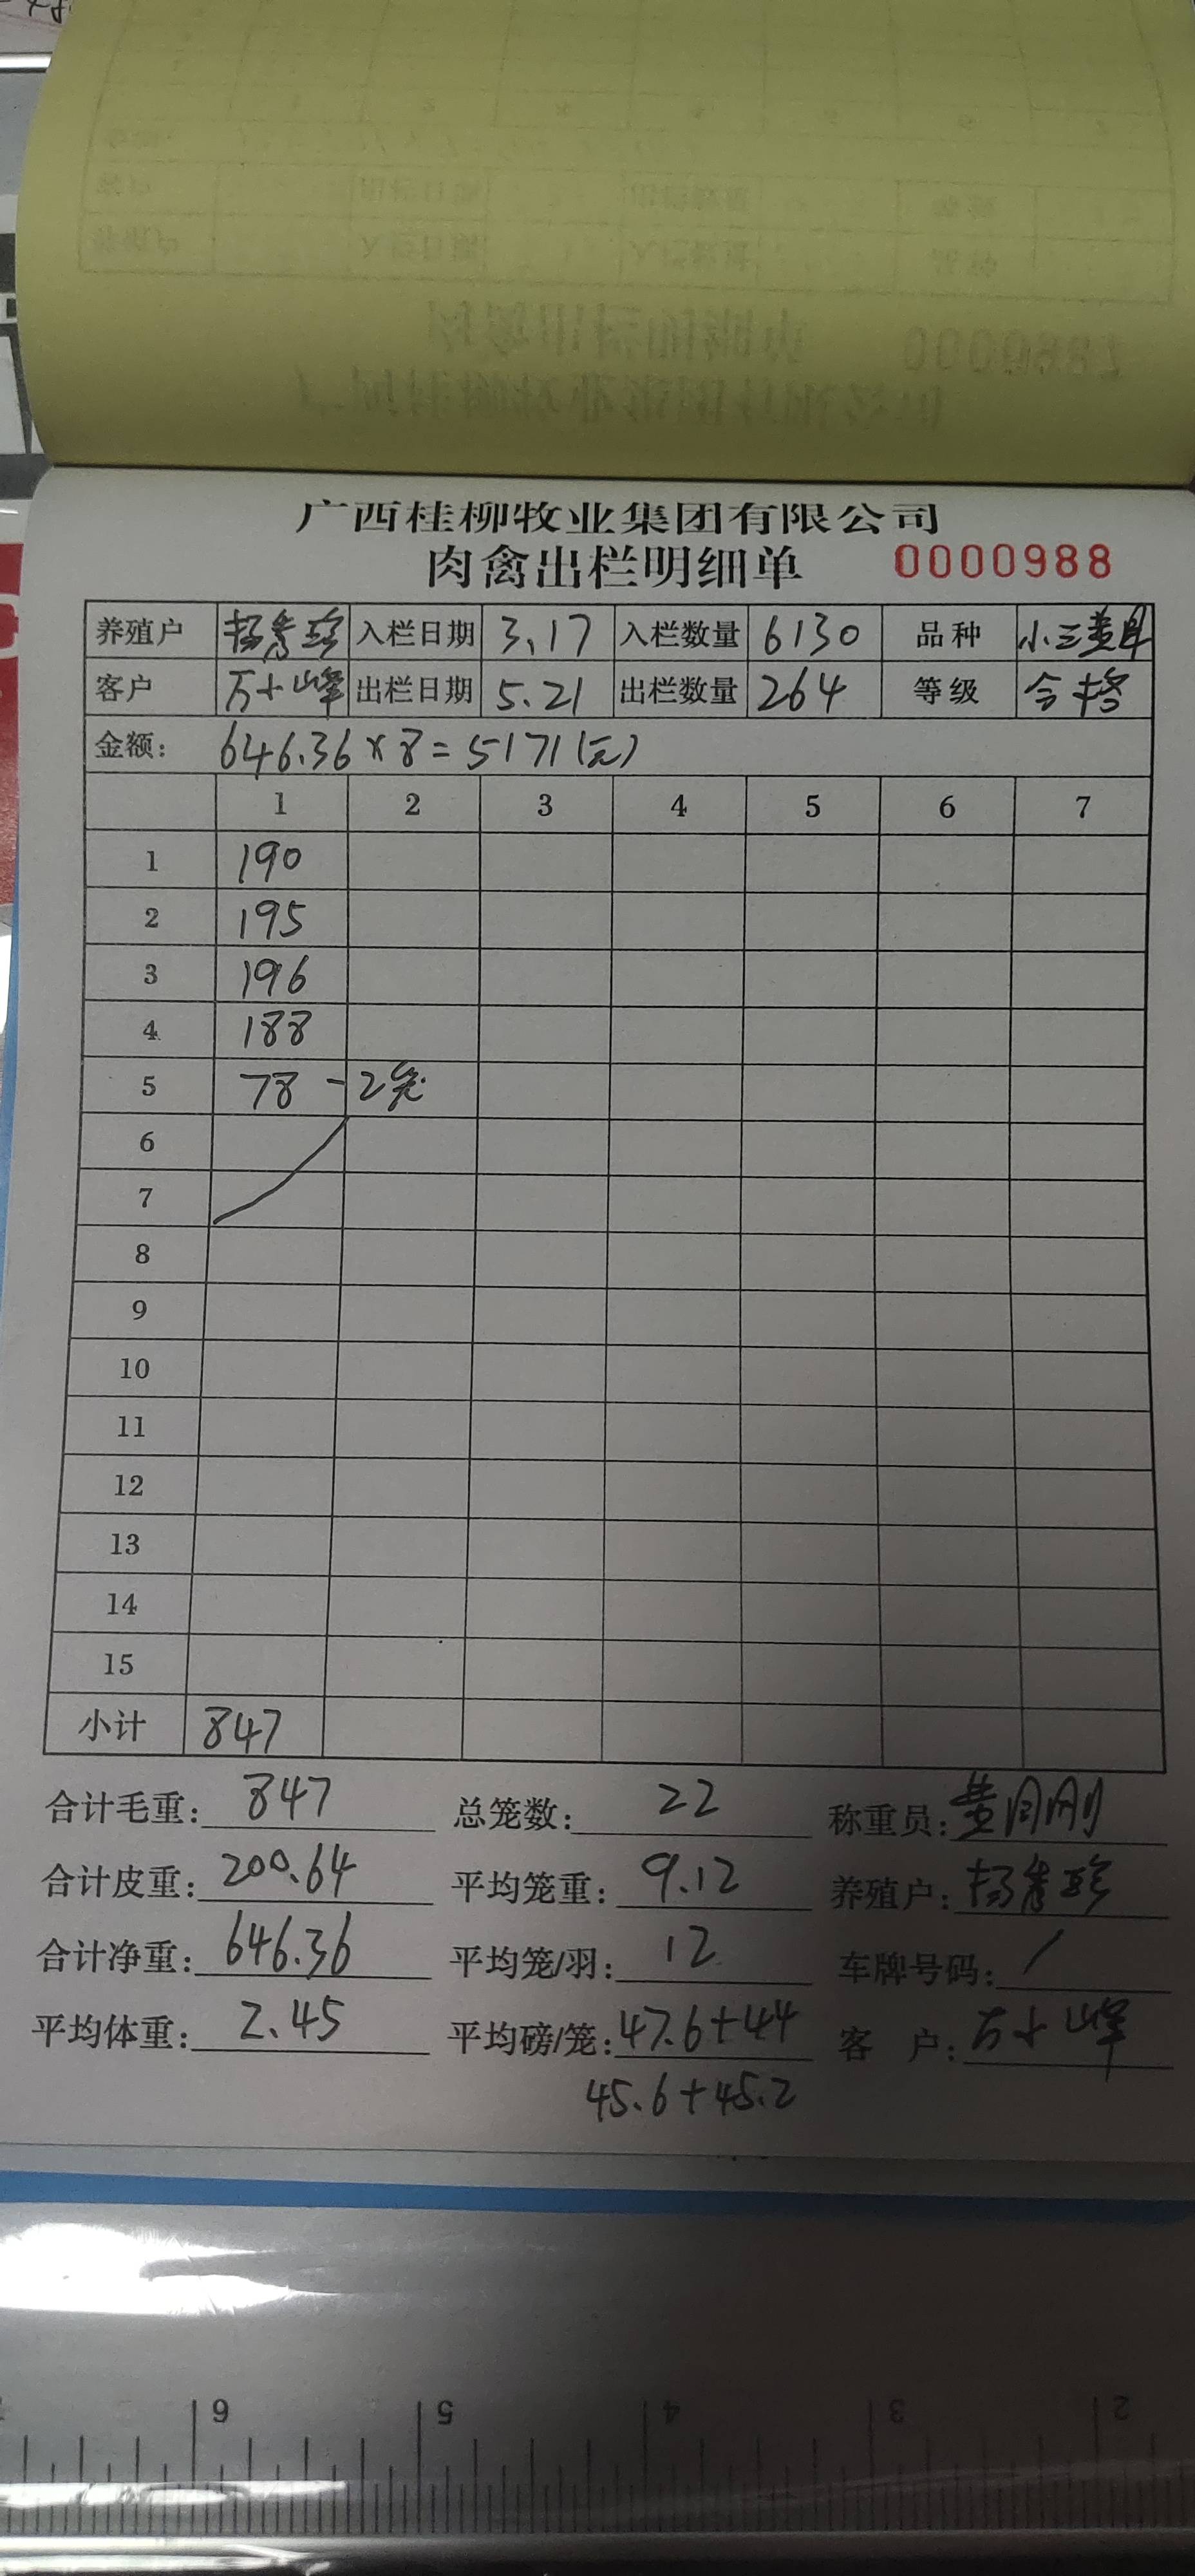 广西桂柳牧业集团有限公司
肉禽出栏明细单 0000988
养殖户 入栏日期 3.17 入栏数量 6130 品种 小三黄
客户 万十峰 出栏日期 5.21 出栏数量 264 等级 合格
金额： 646.36×8=5171(元)
1 2 3 4 5 6 7
1 190
2 195
3 196
4 188
5 78 -2笼
6
7
8
9
10
11
12
13
14
15
小计 847
合计毛重: 847 总笼数: 22 称重员: 黄刚
合计皮重: 200.64 平均笼重: 9.12 养殖户:
合计净重: 646.36 平均笼/羽: 12 车牌号码: /
平均体重: 2.45 平均磅/笼: 47.6+44 客 户: 万十峰
45.6+45.2
6 5 4 3 2